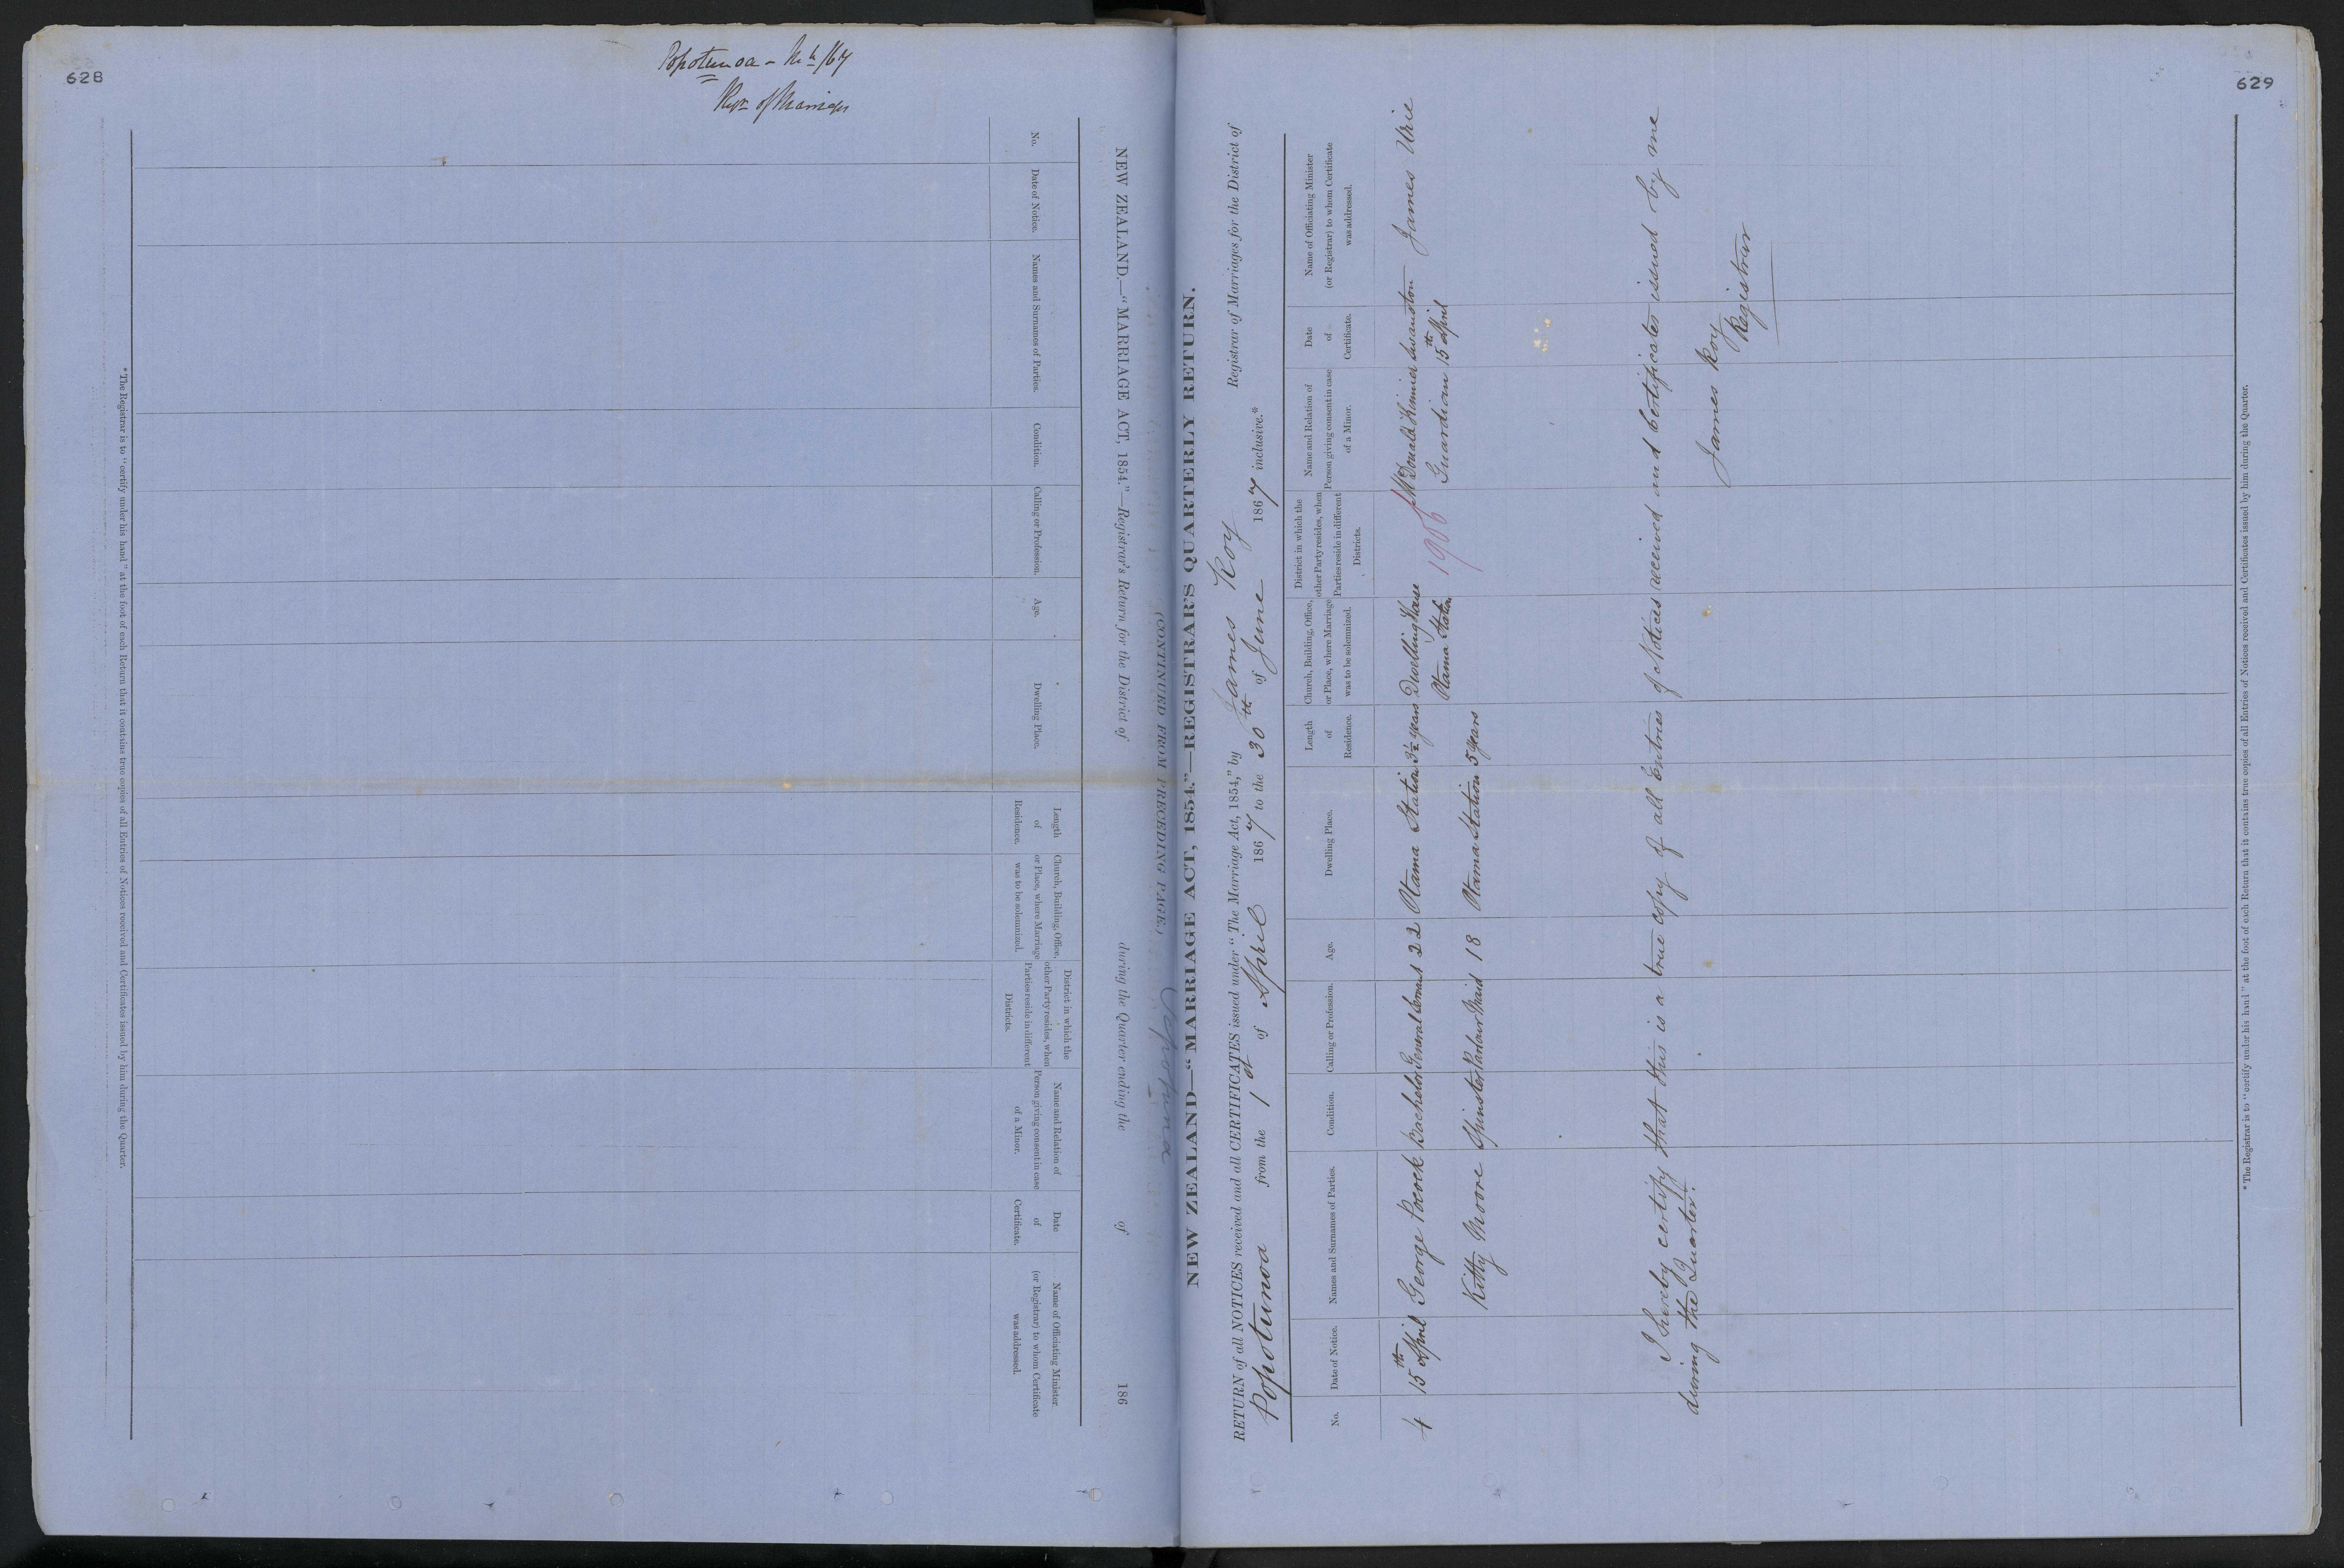 628
Popotunoa - No 4/67
Regr of Marriages
(CONTINUED FROM PRECEDING PAGE.)
NEW ZEALAND.—"MARRIAGE ACT, 1854."—Registrar's Return for the District of during the Quarter ending the of 186
No.
Date of Notice.
Names and Surnames of Parties.
Condition.
Calling or Profession.
Age.
Dwelling Place.
Length
of
Residence.
Church, Building, Office,
or Place, where Marriage
was to be solemnized.
District in which the
other Party resides, when
Parties reside in different
Districts.
Name and Relation of
Person giving consent in case
of a Minor.
Date
of
Certificate.
Name of Officiating Minister
(or Registrar) to whom Certificate
was addressed.
* The Registrar is to "certify under his hand" at the foot of each Return that it contains true copies of all Entries of Notices received and Certificates issued by him during the Quarter.
629
NEW ZEALAND—"MARRIAGE ACT, 1854."—REGISTRAR'S QUARTERLY RETURN.
RETURN of all NOTICES received and all CERTIFICATES issued under "The Marriage Act, 1854," by James Roy Registrar of Marriages for the District of
Popotunoa from the 1st of April 1867 to the 30th of June 1867 inclusive.*
No.
Date of Notice.
Names and Surnames of Parties.
Condition.
Calling or Profession.
Age.
Dwelling Place.
Length
of
Residence.
Church, Building, Office,
or Place, where Marriage
was to be solemnized.
District in which the
other Party resides, when
Parties reside in different
Districts.
Name and Relation of
Person giving consent in case
of a Minor.
Date
of
Certificate.
Name of Officiating Minister
(or Registrar) to whom Certificate
was addressed.
4 15th April George Pocock Bachelor General Servant 22 Otama Station 3½ years Dwelling House McDonald James Urie
Otama Station 1906 Guardian 15th April
Kitty Moore Spinster Parlour Maid 18 Otama Station 5 years
I hereby certify that this is a true copy of all Entries of Notices received and Certificates issued by me
during the Quarter.
James Roy
Registrar
* The Registrar is to "certify under his hand" at the foot of each Return that it contains true copies of all Entries of Notices received and Certificates issued by him during the Quarter.